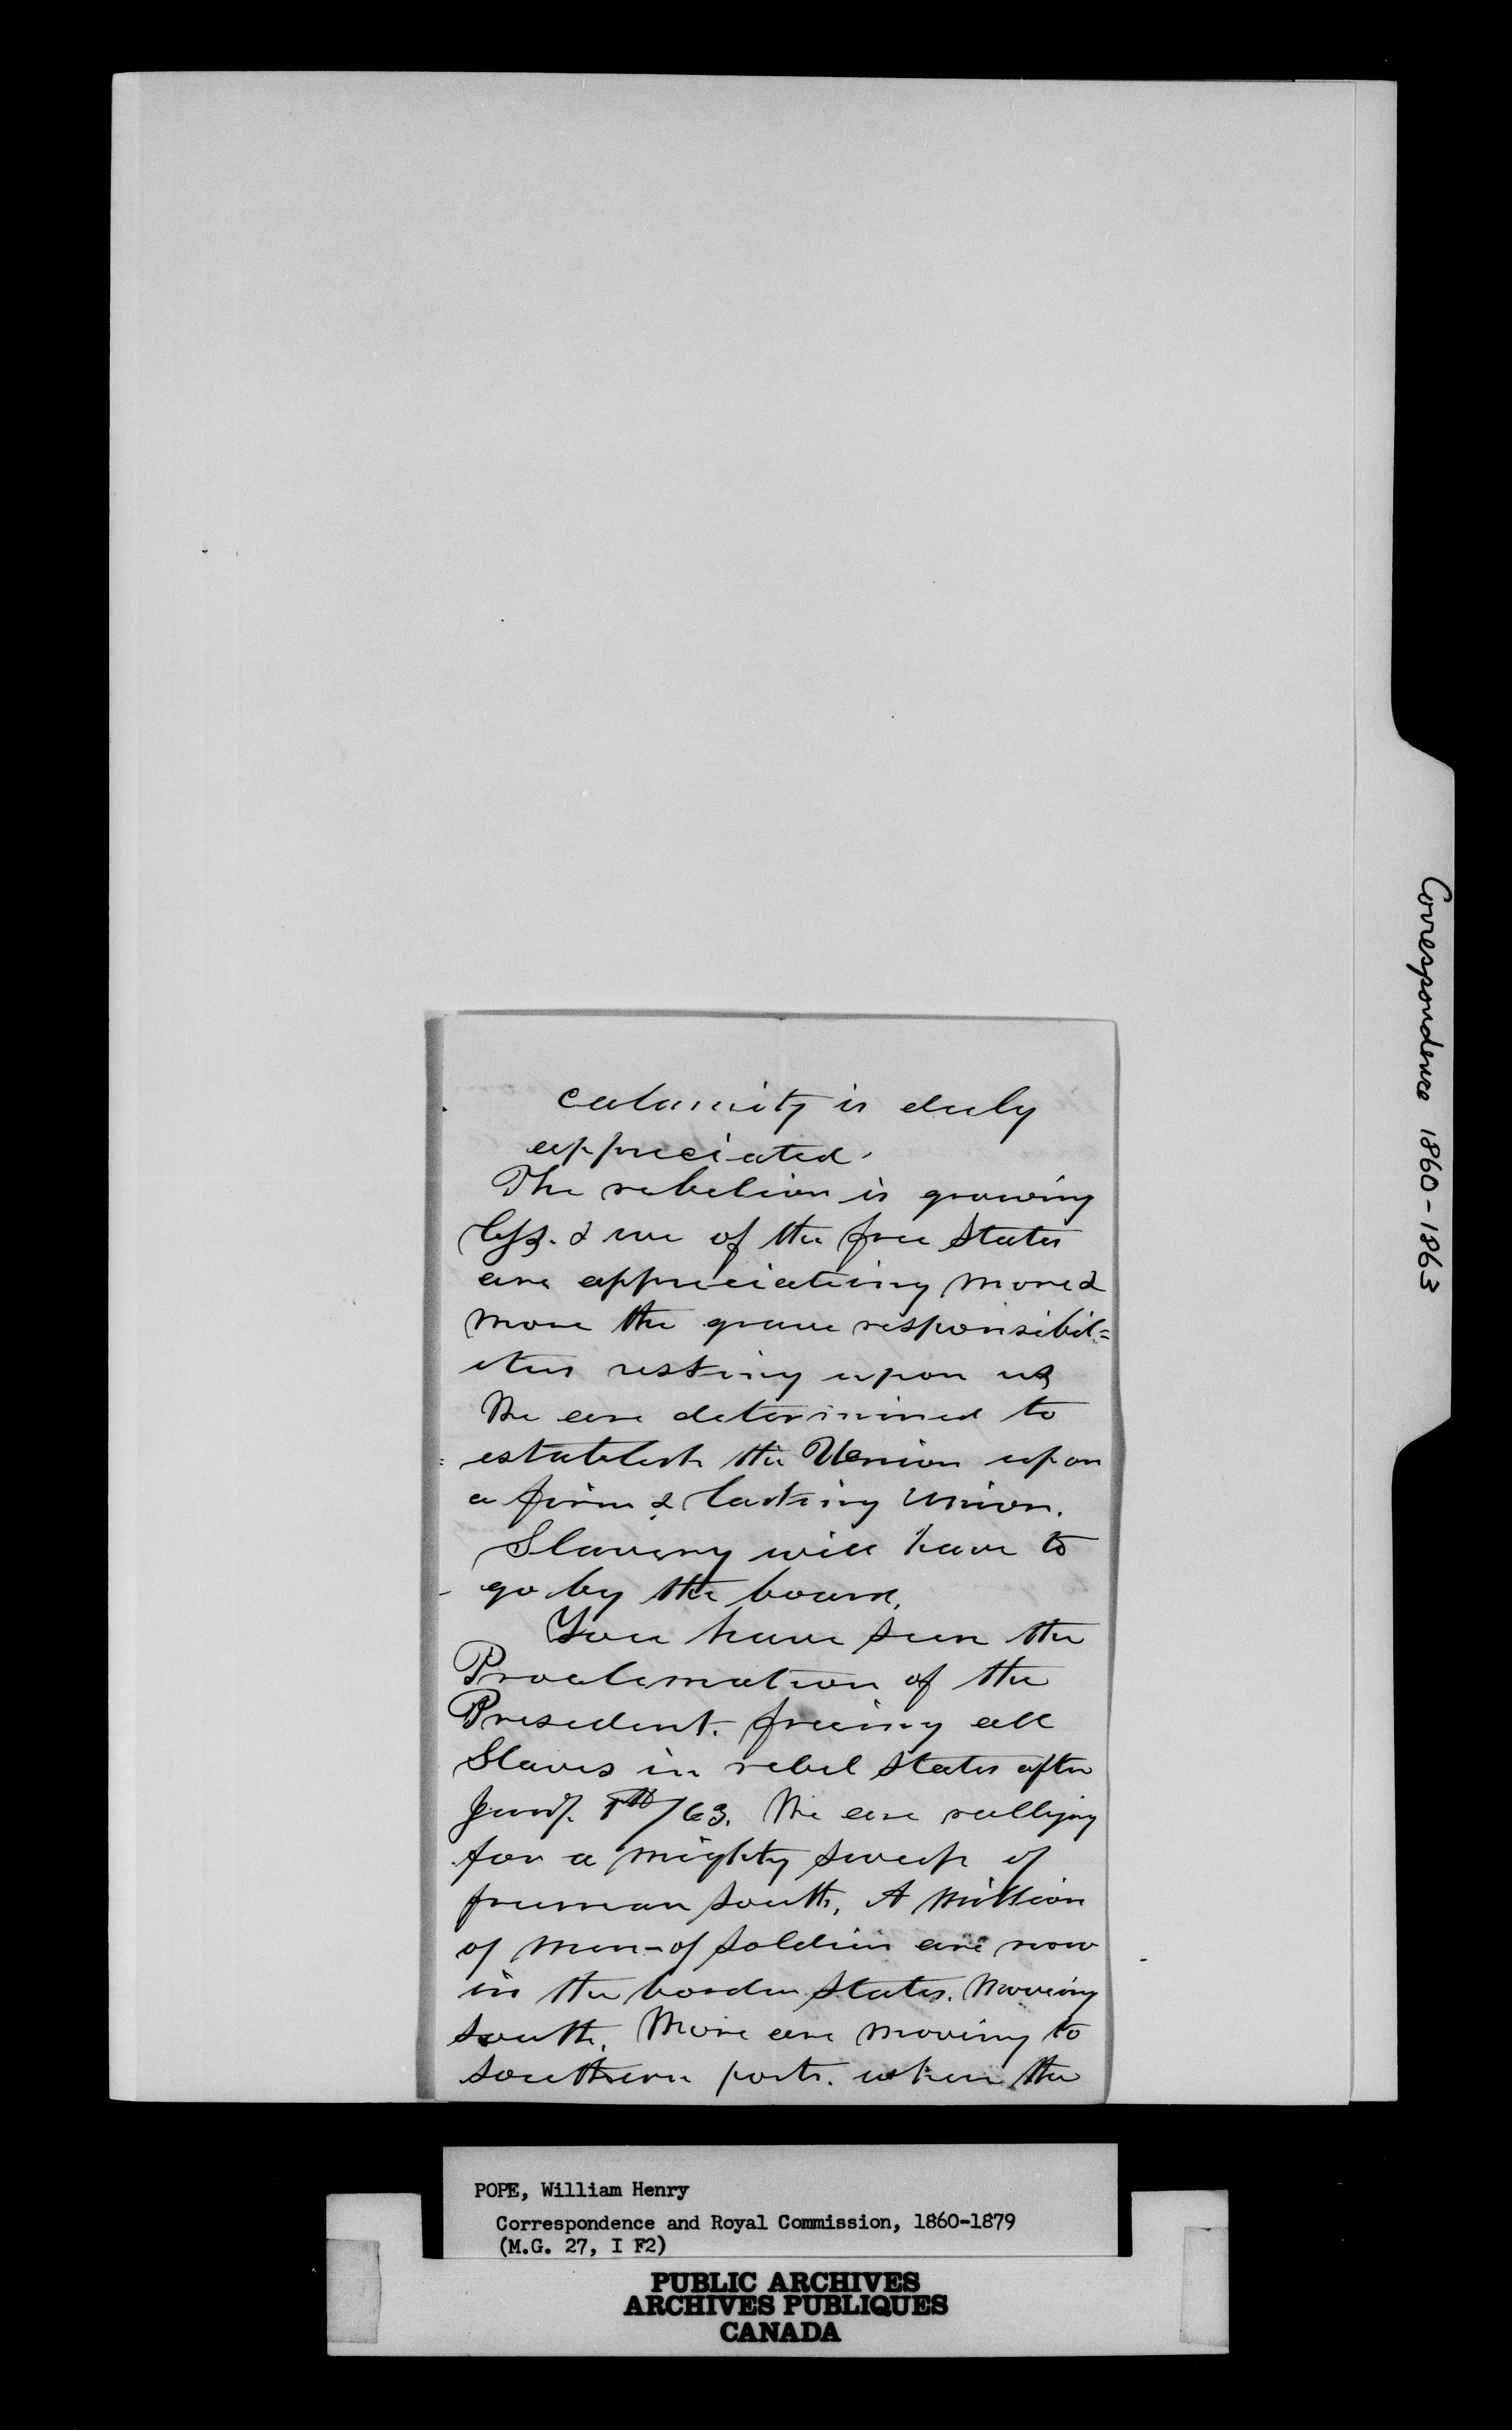 calamity is duly
appreciated.
The rebelion is growing
less. & we of the free States
are appreciating more &
more the grave responsibil=
ities resting upon us
We are determined to
establish the Union upon
a firm & lasting Union.
Slavery will have to
go by the board.
You have seen the
Proclamation of the
President. freeing all
Slaves in rebel States after
Jany. 1st/63. We are rallying
for a mighty sweep of
freeman South. A Million
of men - of soldiers are now
in the border States. Moving
South. More are moving to
Southern ports. when the
Correspondence 1860-1863
POPE, William Henry
Correspondence and Royal Commission, 1860-1879
(M.G. 27, I F2)
PUBLIC ARCHIVES
ARCHIVES PUBLIQUES
CANADA